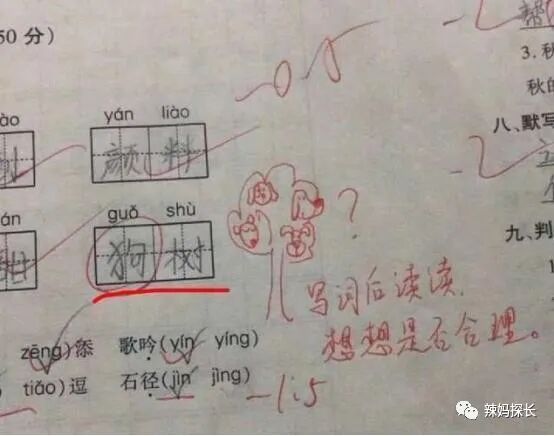 50分)
yán liào
颜料
guǒ shù
狗树
?
写词后读读,
想想是否合理。
zēng)添 歌吟(yín yíng)
tiǎo)逗 石径(jìn jìng)
-1.5
-0.5
3.秋
秋的
八、默写
九、判
辣妈探长